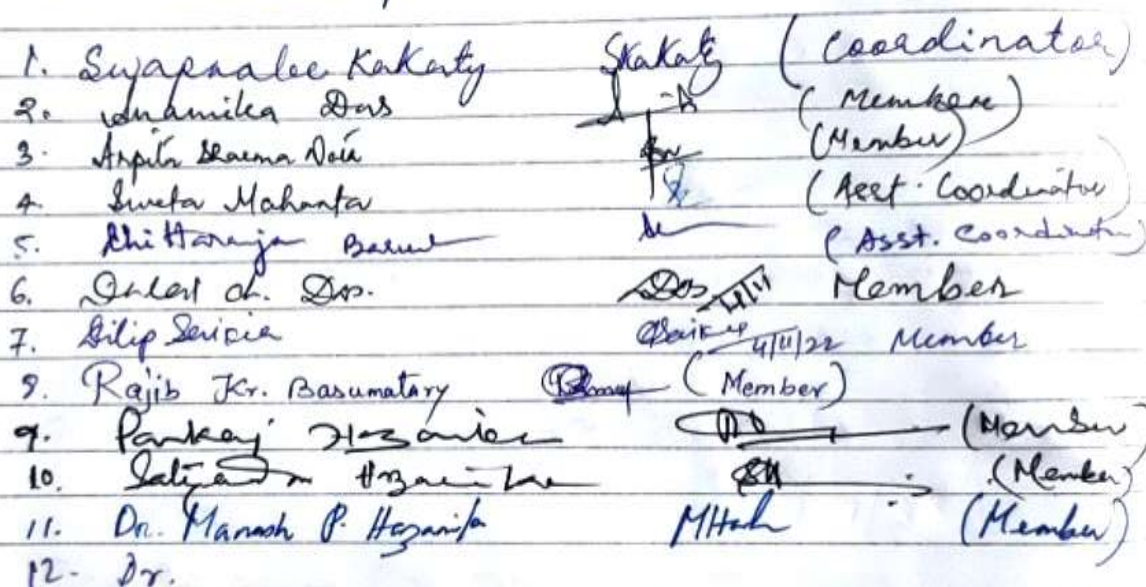 1. Swapnalee Kakaty SKakaty (Coordinator)
2. Anamika Das (Member)
3. Arpita Sharma Doia (Member)
4. Sweta Mahanta (Asst. Coordinator
5. Chittaranja Barua (Asst. Coordinator)
6. ch. Das. Das 4/11 Member
7. Dilip Saikia Saikia 4/11/22 Member
8. Rajib Kr. Basumatary (Member)
9. Pankaj Hazarika (Member
10. Hazarika SH (Member)
11. Dr. Manash P. Hazarika (Member)
12. Dr.